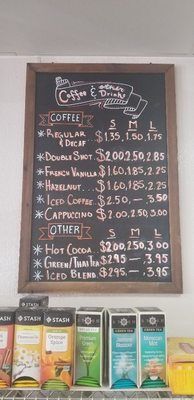 Coffee & other Drinks
COFFEE S M L
Regular & Decaf $1.35, 1.50, 1.75
Double Shot $2.00 2.50, 2.85
French Vanilla $1.60, 1.85, 2.25
Hazelnut... $1.60, 1.85, 2.25
Iced Coffee $2.50, — 3.50
Cappuccino $2.00, 2.50, 3.00
OTHER S M L
Hot Cocoa $2.00, 2.50, 3.00
Green/Thai Tea $2.95 — 3.95
Iced Blend $2.95 — 3.95
STASH
STASH
STASH
Orange Spice
Premium Green
Moroccan Mint